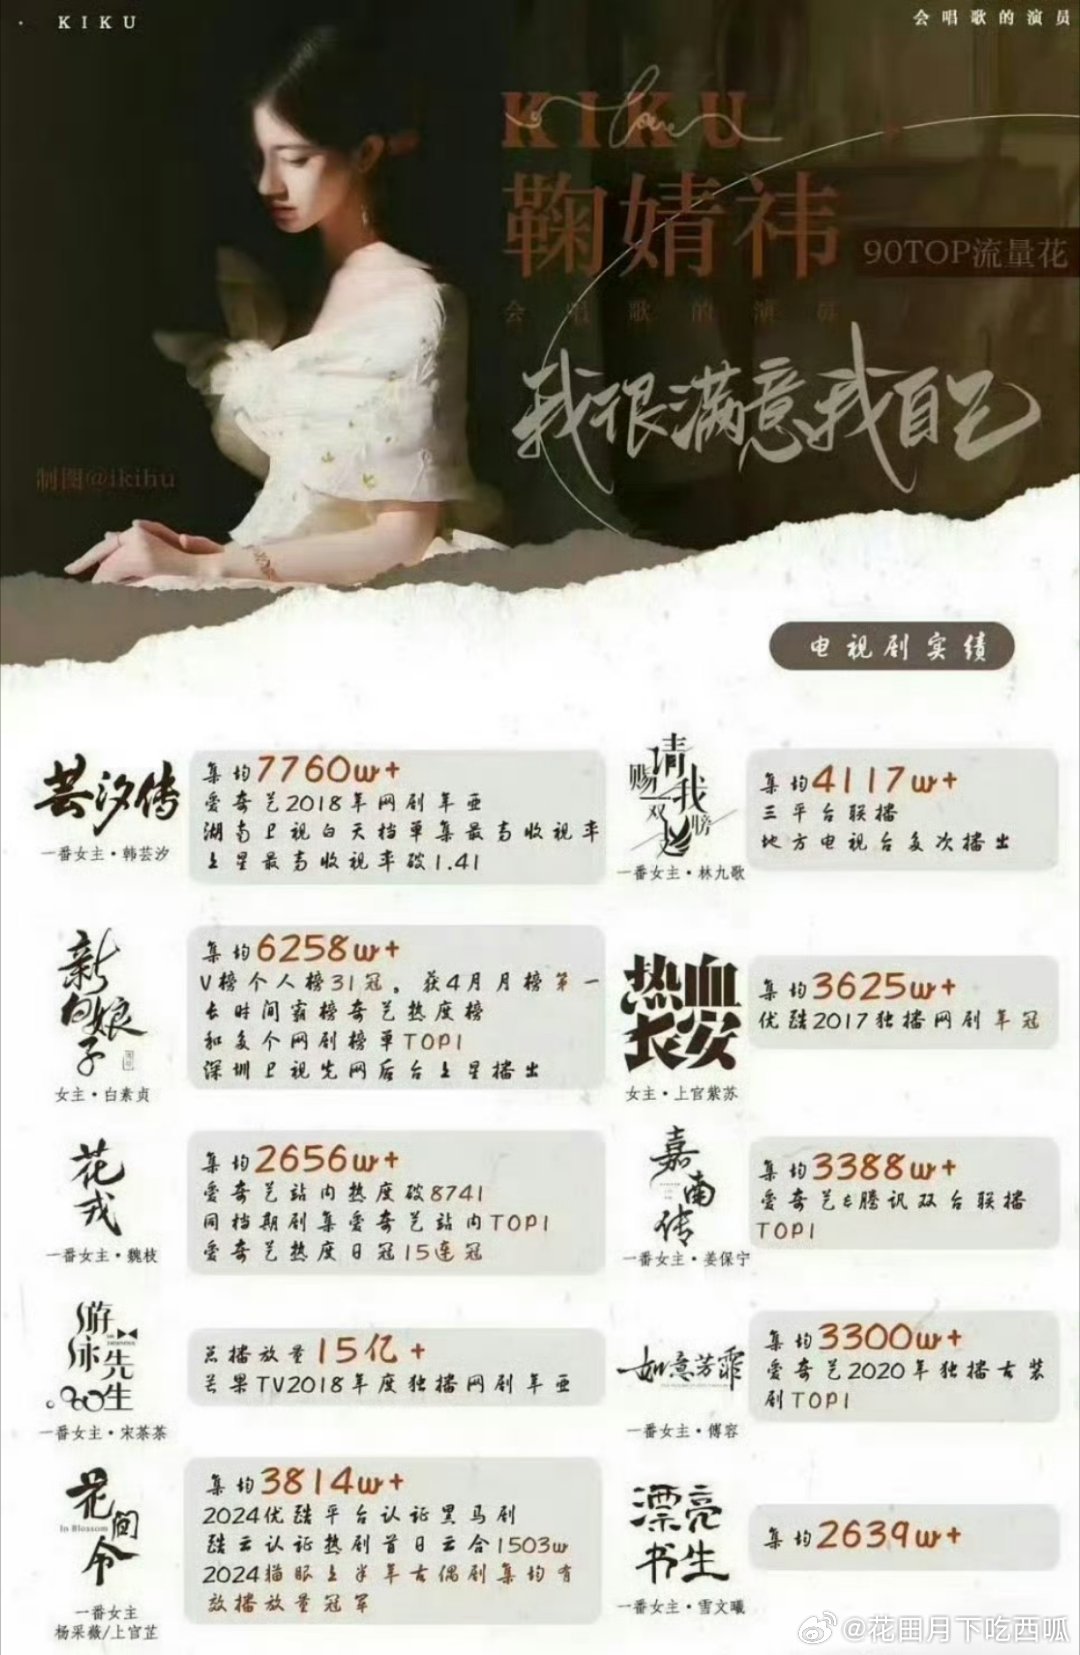 · KIKU
会唱歌的演员
KIKU
love
鞠婧祎
90TOP流量花
会唱歌的演员
我很满意我自己
制图@ikihu
电视剧实绩
芸汐传
一番女主·韩芸汐
集均7760w+
爱奇艺2018年网剧年亚
湖南卫视白天档单集最高收视率
上星最高收视率破1.41
请赐我一双翅膀
一番女主·林九歌
集均4117w+
三平台联播
地方电视台多次播出
新白娘子
女主·白素贞
集均6258w+
V榜个人榜31冠。获4月月榜第一
长时间霸榜奇艺热度榜
和多个网剧榜单TOP1
深圳卫视先网后台上星播出
热血长安
女主·上官紫苏
集均3625w+
优酷2017独播网剧年冠
花戎
一番女主·魏枝
集均2656w+
爱奇艺站内热度破8741
同档期剧集爱奇艺站内TOP1
爱奇艺热度日冠15连冠
嘉南传
一番女主·姜保宁
集均3388w+
爱奇艺&腾讯双台联播
TOP1
游泳先生
一番女主·宋茶茶
总播放量15亿+
芒果TV2018年度独播网剧年亚
如意芳霏
一番女主·傅容
集均3300w+
爱奇艺2020年独播古装
剧TOP1
花间令
In Blossom
一番女主
杨采薇/上官芷
集均3814w+
2024优酷平台认证黑马剧
酷云认证热剧首日云合1503w
2024猫眼上半年古偶剧集均有
效播放量冠军
漂亮书生
一番女主·雪文曦
集均2639w+
@花田月下吃西呱